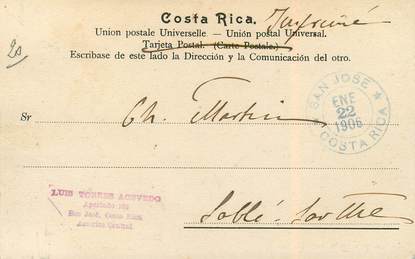 Costa Rica. Imprimé
Union postale Universelle. — Unión postal Universal.
Tarjeta Postal. (Carte Postale.)
Escríbase de este lado la Dirección y la Comunicación del otro.
SAN JOSE
ENE
22
1906
COSTA RICA
Sr Ch. Martin
LUIS TORRES ACEVEDO
Apartado
San José, Costa Rica
America Central
Sablé - Sarthe